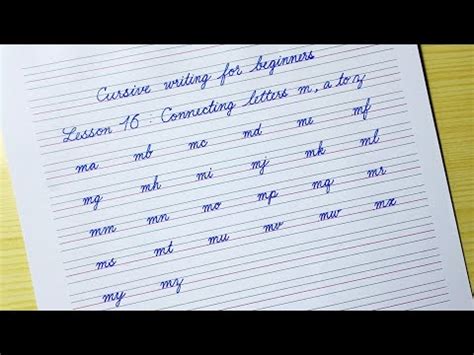 Cursive writing for beginners
Lesson 16 : Connecting letters m, a to z
ma mb mc md me mf
mg mh mi mj mk ml
mm mn mo mp mq mr
ms mt mu mv mw mx
my mz